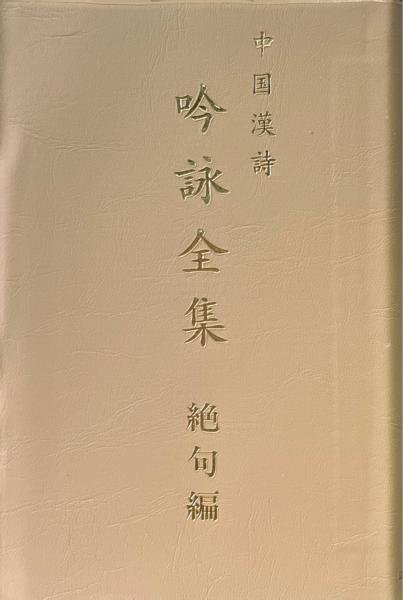 中国漢詩
吟詠全集 絶句編